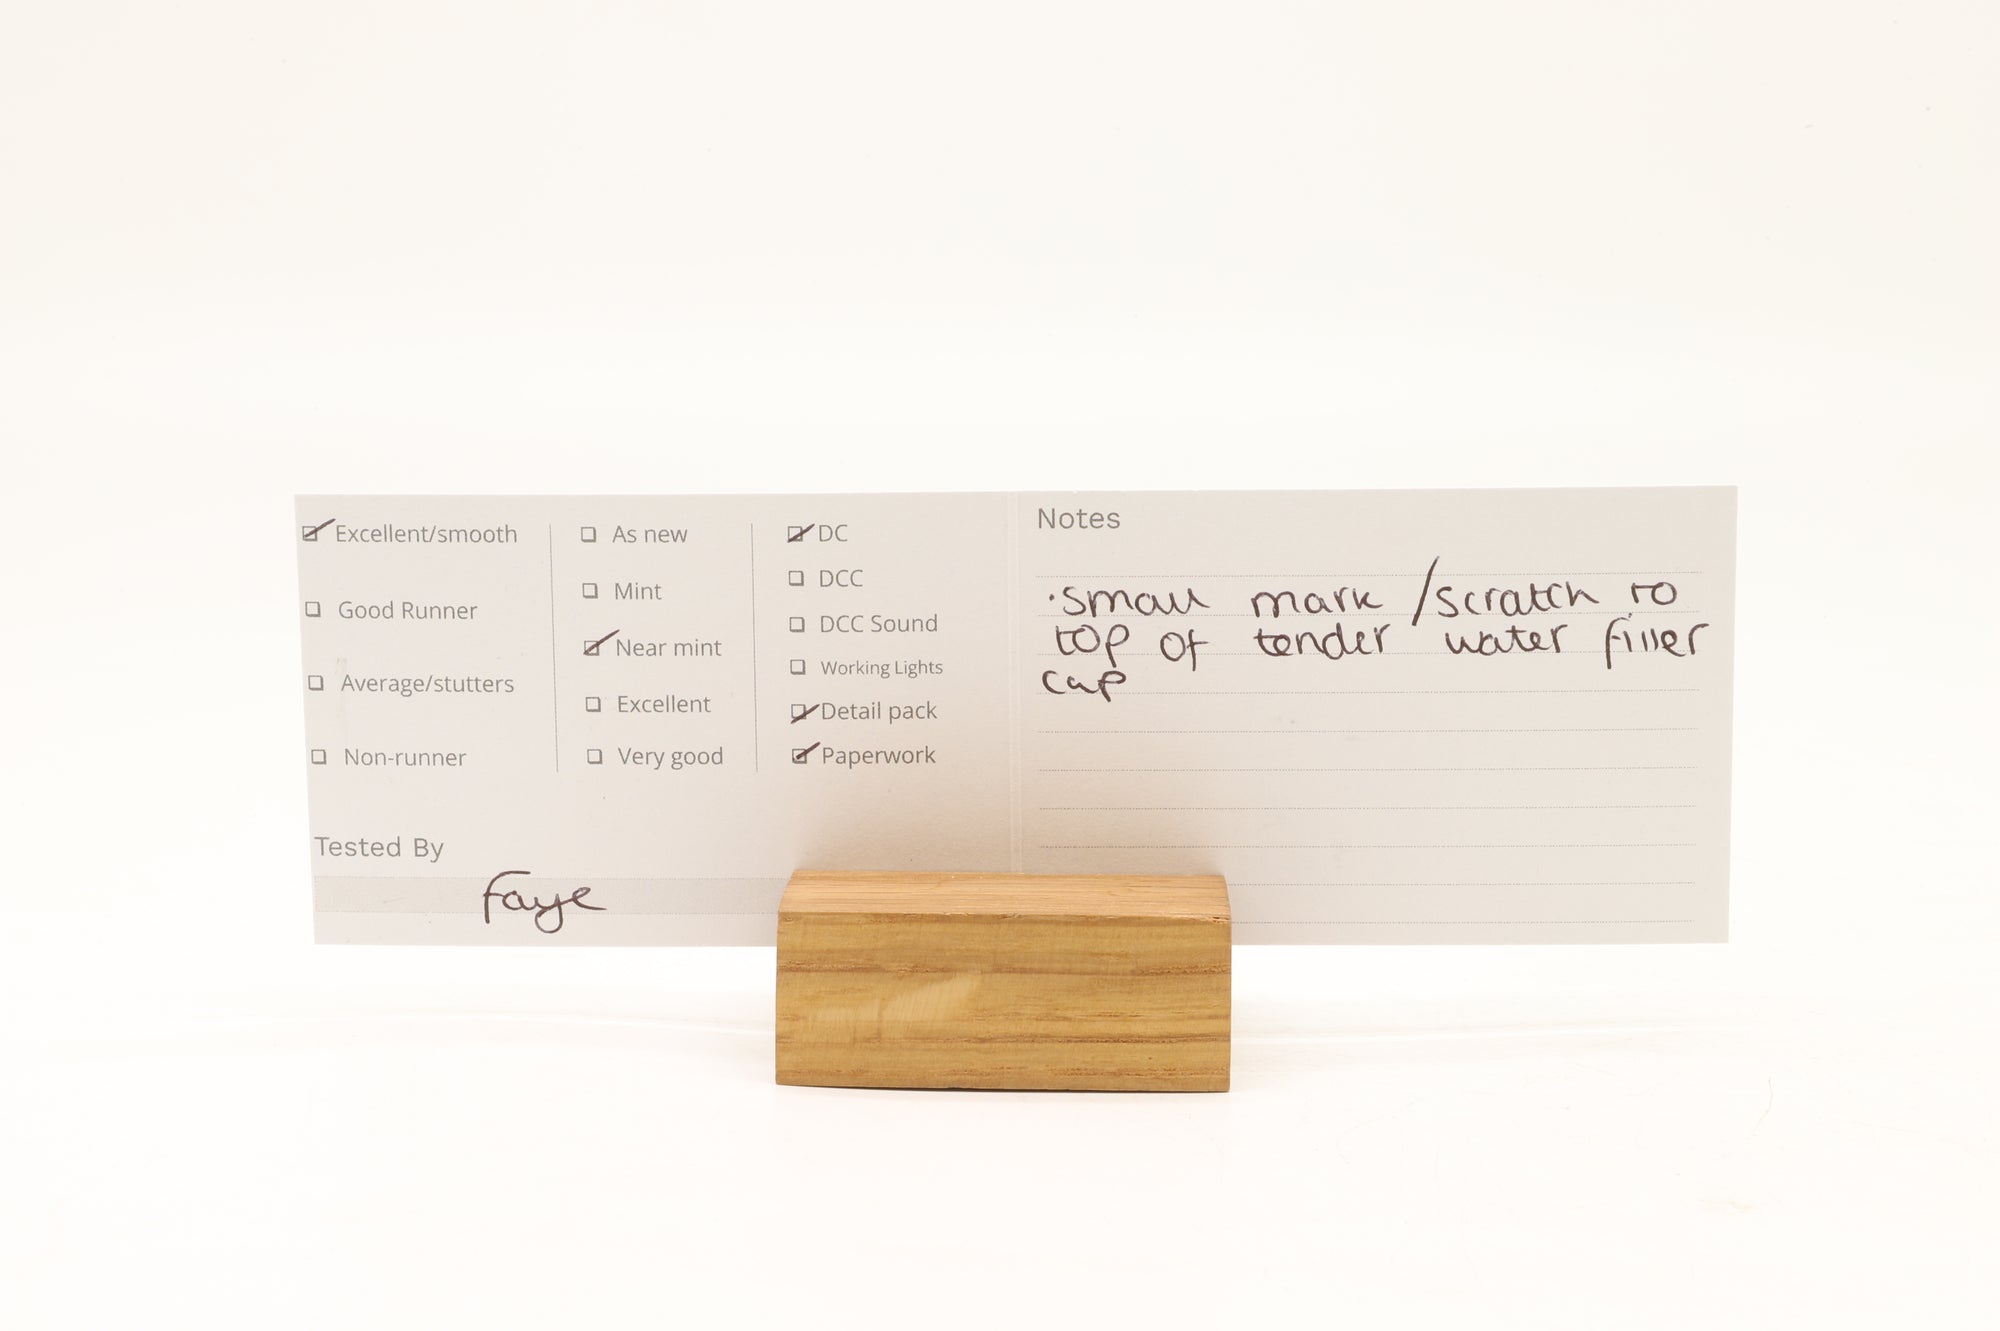 ☑ Excellent/smooth
☐ Good Runner
☐ Average/stutters
☐ Non-runner
☐ As new
☐ Mint
☑ Near mint
☐ Excellent
☐ Very good
☑ DC
☐ DCC
☐ DCC Sound
☐ Working Lights
☑ Detail pack
☑ Paperwork
Tested By
Faye
Notes
·small mark /scratch to
top of tender water filler
cap